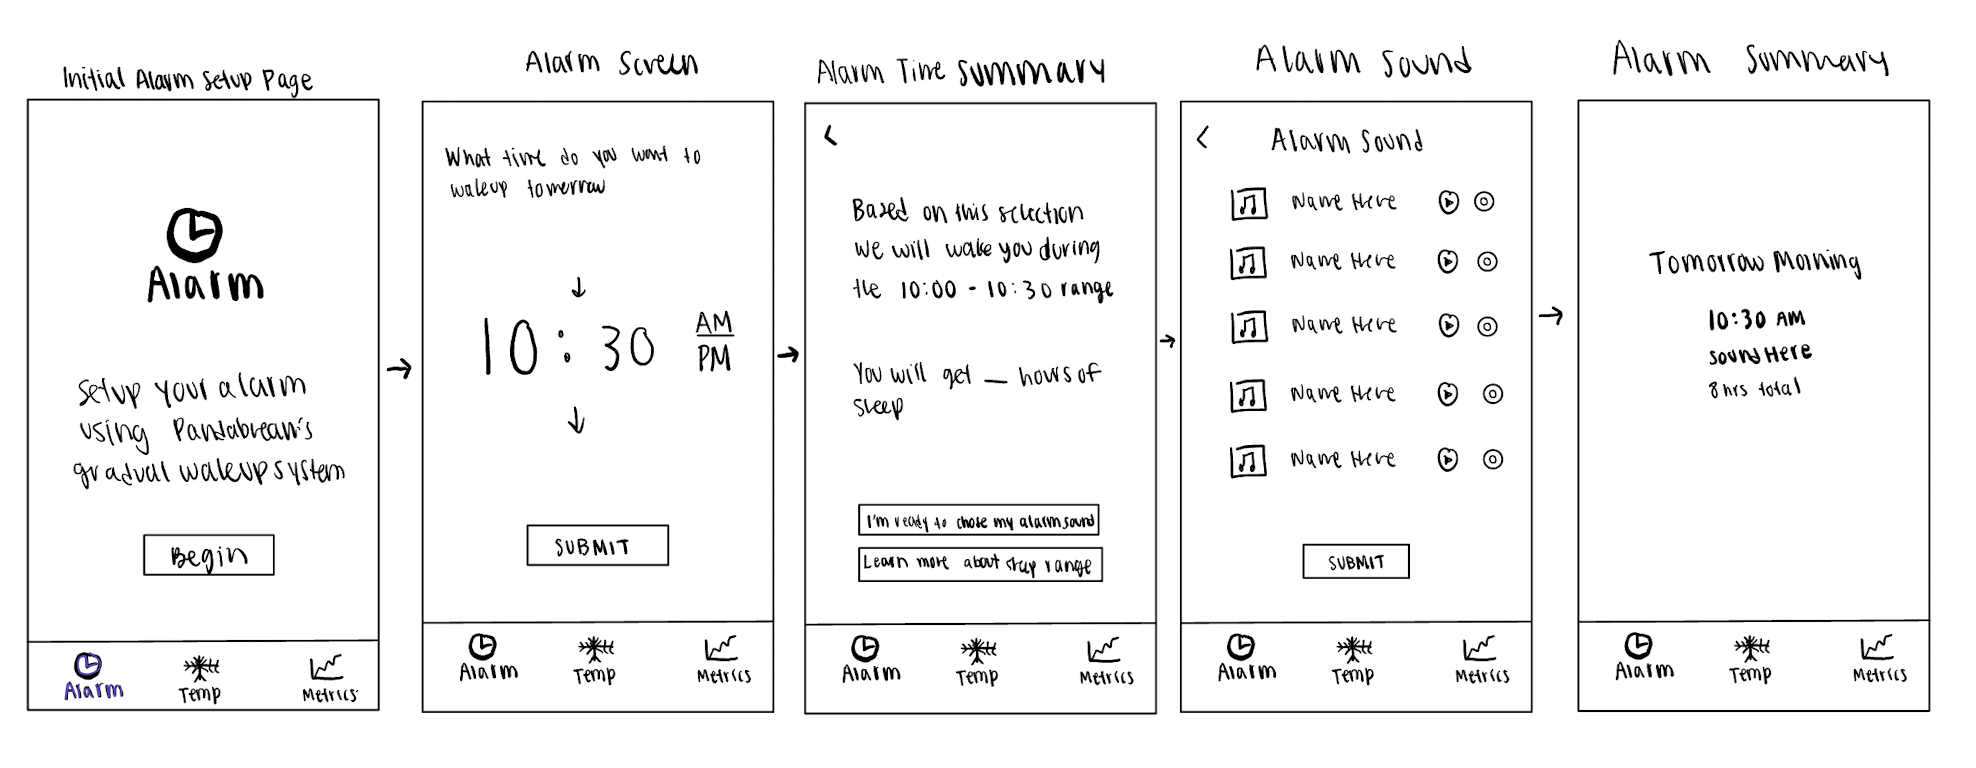 Initial Alarm Setup Page
Alarm
Setup your alarm
using Pandabrean's
gradual wakeup system
Begin
Alarm
Temp
Metrics
Alarm Screen
What time do you want to
wakeup tomorrow
10:30
AM
PM
SUBMIT
Alarm
Temp
Metrics
Alarm Time Summary
<
Based on this selection
we will wake you during
the 10:00 - 10:30 range
You will get __ hours of
sleep
I'm ready to chose my alarm sound
Learn more about sleep range
Alarm
Temp
Metrics
Alarm Sound
< Alarm Sound
Name Here
Name Here
Name Here
Name Here
Name Here
SUBMIT
Alarm
Temp
Metrics
Alarm Summary
Tomorrow Morning
10:30 AM
Sound Here
8 hrs total
Alarm
Temp
Metrics